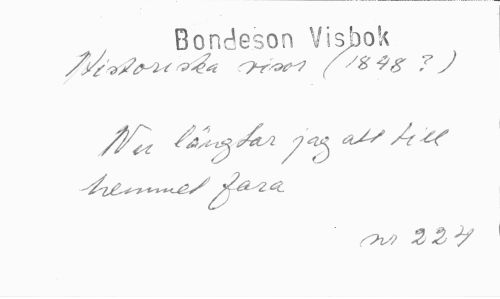 Bondeson Visbok
Historiska visor (1848?)
Nu längtar jag att till
hemmet fara
nr 224